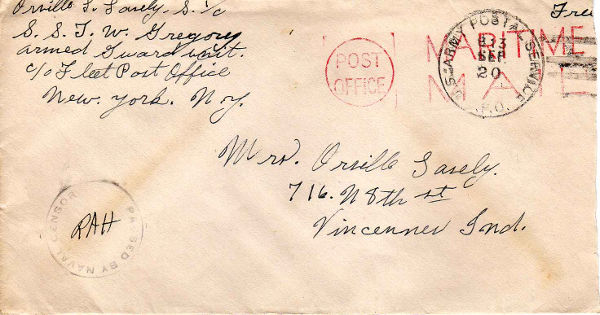 Orville L. Lasely. S. 1/c
Free
S. S. T. W. Gregory
armed Guard unit.
c/o Fleet Post Office
New. york. N.y.
POST
OFFICE
MARITIME
MAIL
U.S. ARMY POSTAL SERVICE
SEP
20
A.P.O.
Mrs. Orville Lasely.
716. N 8th st
Vincennes Ind.
PASSED BY NAVAL CENSOR
RAH